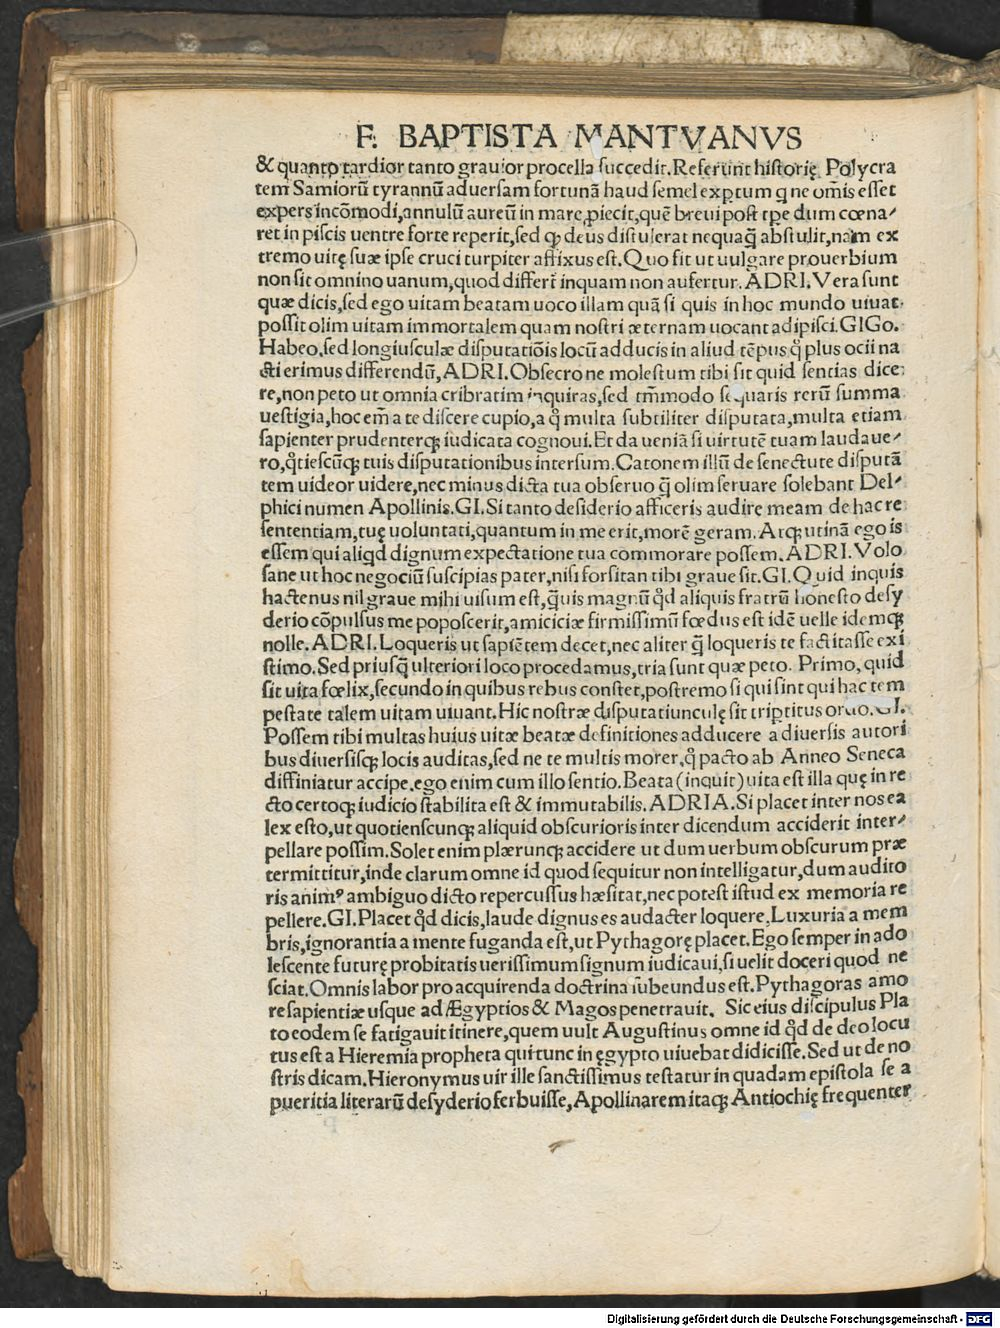 F. BAPTISTA MANTVANVS
& quanto tardior tanto grauior procella succedit. Referunt historię Polycra
tem Samiorū tyrannū aduersam fortunā haud semel exptum q ne om̄is esset
expers incōmodi, annulū aureū in mare piecit, quē breui post tpe dum cœna⸗
ret in piscis uentre forte reperit, sed qꝫ deus distulerat nequaq̃ abstulit, nam ex
tremo uitę suæ ipse cruci turpiter affixus est. Quo fit ut uulgare prouerbium
non sit omnino uanum, quod differt̄ inquam non aufertur. ADRI. Vera sunt
quæ dicis, sed ego uitam beatam uoco illam quā si quis in hoc mundo uiuat
possit olim uitam immortalem quam nostri æternam uocant adipisci. GIGo.
Habeo, sed longiusculæ disputatiōis locū adducis in aliud tēpus q̊ plus ocii na
cti erimus differendū, ADRI. Obsecro ne molestum tibi sit quid sentias dice
re, non peto ut omnia cribratim inquiras, sed tm̄modo sequaris rerū summa
uestigia, hoc em̄ a te discere cupio, a q̊ multa subtiliter disputata, multa etiam
sapienter prudenterqꝫ iudicata cognoui. Et da ueniā si uirtutē tuam laudaue⸗
ro, q̊tiescūqꝫ tuis disputationibus intersum. Catonem illū de senectute disputā
tem uideor uidere, nec minus dicta tua obseruo q̃ olim seruare solebant Del⸗
phici numen Apollinis. GI. Si tanto desiderio afficeris audire meam de hac re
sententiam, tuę uoluntati, quantum in me erit, morē geram. Atqꝫ utinā ego is
essem qui aliqd dignum expectatione tua commorare possem. ADRI. Volo
sane ut hoc negociū suscipias pater, nisi forsitan tibi graue sit. GI. Quid inquis
hactenus nil graue mihi uisum est, q̃uis magnū q̊d aliquis fratrū honesto desy
derio cōpulsus me poposcerit, amiciciæ firmissimū fœdus est idē uelle idemqꝫ
nolle. ADRI. Loqueris ut sapiētem decet, nec aliter q̃ loqueris te factitasse exi
stimo. Sed priusq̃ ulteriori loco procedamus, tria sunt quæ peto. Primo, quid
sit uita fœlix, secundo in quibus rebus constet, postremo si qui sint qui hac tem
pestate talem uitam uiuant. Hic nostræ disputatiunculę sit triptitus ordo. GI.
Possem tibi multas huius uitæ beatæ definitiones adducere a diuersis autori
bus diuersisqꝫ locis auditas, sed ne te multis morer, q̊ pacto ab Anneo Seneca
diffiniatur accipe, ego enim cum illo sentio. Beata (inquit) uita est illa quę in re
cto certoqꝫ iudicio stabilita est & immutabilis. ADRIA. Si placet inter nos ea
lex esto, ut quotienscunqꝫ aliquid obscurioris inter dicendum acciderit inter⸗
pellare possim. Solet enim plærunqꝫ accidere ut dum uerbum obscurum præ
termittitur, inde clarum omne id quod sequitur non intelligatur, dum audito
ris animꝰ ambiguo dicto repercussus hæsitat, nec potest istud ex memoria re
pellere. GI. Placet q̊d dicis, laude dignus es audacter loquere, Luxuria a mem
bris, ignorantia a mente fuganda est, ut Pythagorę placet. Ego semper in ado
lescente futurę probitatis uerissimum signum iudicaui, si uelit doceri quod ne
sciat. Omnis labor pro acquirenda doctrina subeundus est. Pythagoras amo
re sapientiæ usque ad Ægyptios & Magos penetrauit. Sic eius discipulus Pla
to eodem se fatigauit itinere, quem uult Augustinus omne id q̊d de deo locu
tus est a Hieremia propheta qui tunc in ęgypto uiuebat didicisse. Sed ut de no
stris dicam. Hieronymus uir ille sanctissimus testatur in quadam epistola se a
pueritia literarū desyderio ferbuisse, Apollinarem itaqꝫ Antiochię frequenter
Digitalisierung gefördert durch die Deutsche Forschungsgemeinschaft - DFG